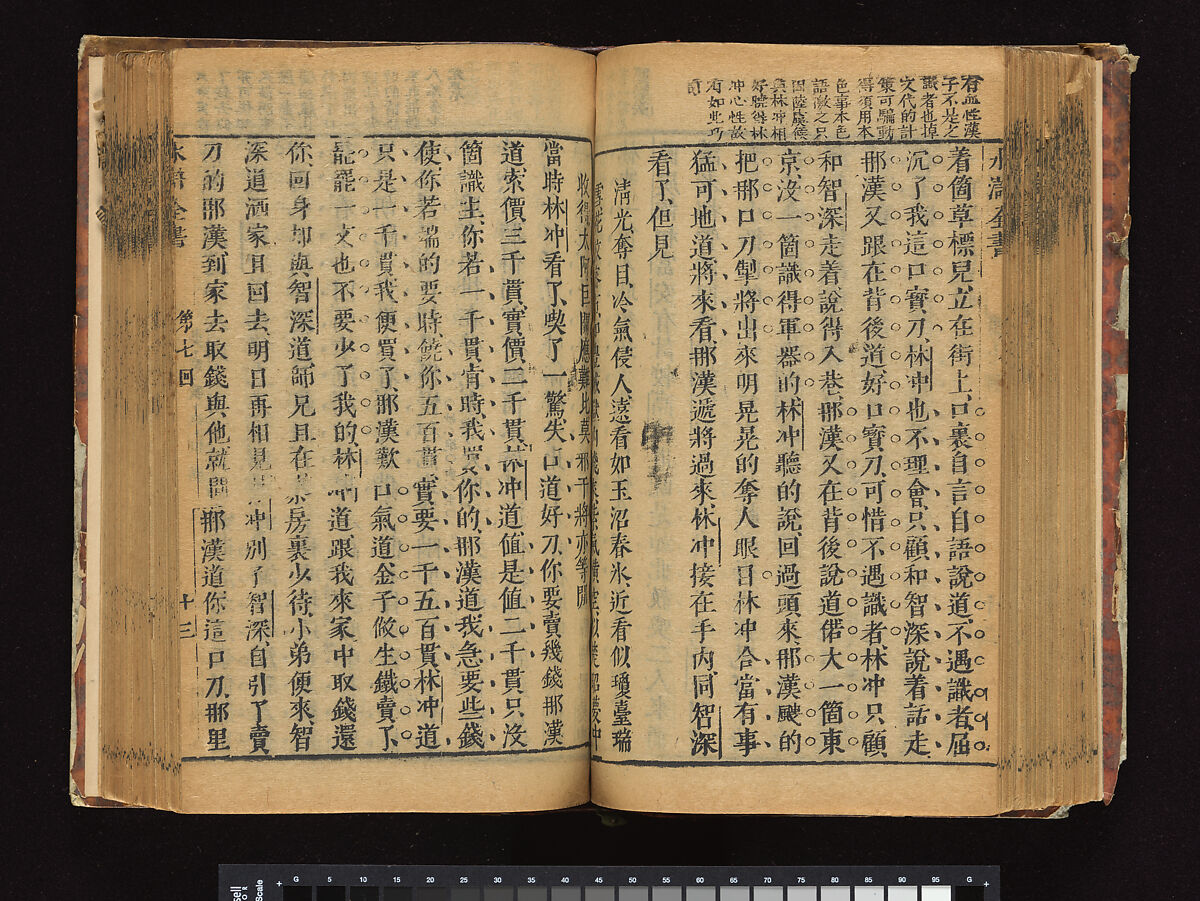 有血性漢
子不是之
識者也掉
文代的計
策可騙動
得須用本
色事本色
語激之只
因陸虞候
與林冲相
好曉得林
冲心性故
有如此巧
水滸全書
着箇草標兒立在街上口裏自言自語說道不遇識者屈
沉了我這口寶刀林冲也不理會只顧和智深說着話走
那漢又跟在背後道好口寶刀可惜不遇識者林冲只顧
和智深走着說得入巷那漢又在背後說道偌大一箇東
京沒一箇識得軍器的林冲聽的說回過頭來那漢颼的
把那口刀掣將出來明晃晃的奪人眼目林冲合當有事
猛可地道將來看那漢遞將過來林冲接在手內同智深
看了但見
清光奪目冷氣侵人遠看如玉沼春氷近看似瓊臺瑞
太阿巨闕應難比莫邪干將亦等閒
當時林冲看了喫了一驚失口道好刀你要賣幾錢那漢
道索價三千貫實價二千貫林冲道值是值二千貫只沒
箇識主你若一千貫肯時我買你的那漢道我急要些錢
使你若端的要時饒你五百貫實要一千五百貫林冲道
只是一千貫我便買了那漢歎口氣道金子做生鐵賣了
罷罷一文也不要少了我的林冲道跟我來家中取錢還
你回身却與智深道師兄且在茶房裏少待小弟便來智
深道洒家且回去明日再相見林冲別了智深自引了賣
刀的那漢到家去取錢與他就問那漢道你這口刀那里
水滸全書 第七回 十三